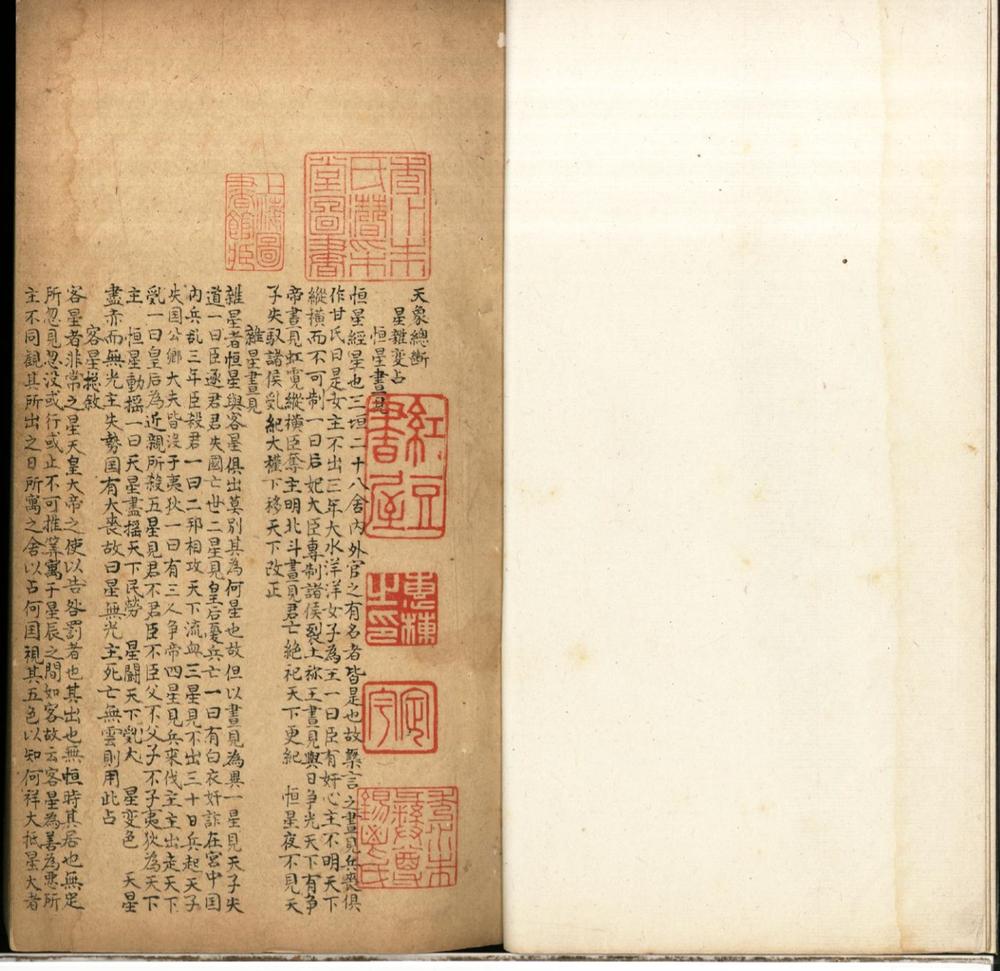 天象總斷
星雜変占
恒星晝見
恒星經星也三垣二十八舍內外官之有名者皆是也故槩言之晝見兵喪俱
作甘氏曰是女主不出三年大水洋洋女子為王一曰臣有奸心主不明天下
縱橫而不可制一曰后妃大臣專制諸侯裂土称王晝見與日争光天下有争
帝晝見虹霓縱橫臣奪主明北斗晝見君亡絶祀天下更紀 恒星夜不見天
子失馭諸侯乱紀大權下移天下改正
雜星晝見
雜星者恒星與客星俱出莫別其為何星也故但以晝見為異一星見天子失
道一曰臣逐君君失國亡世二星見皇后憂兵亡一曰有白衣奸詐在宮中囯
內兵乱三年臣殺君一曰二邦相攻天下流血三星見不出三十日兵起天子
失囯公卿大夫皆没于夷狄一曰有三人争帝四星見兵來伐主主出走天下
乱一曰皇后為近親所殺五星見君不君臣不臣父不父子不子夷狄為天下
主 恒星動搖一曰天星盡摇天下民勞 星闘天下乱大 星変色 天星
盡赤而無光主失勢囯有大喪故曰星無光主死亡無雲則用此占
客星捴敘
客星者非常之星天皇大帝之使以告咎罰者也其出也無恒時其居也無定
所忽見忽没或行或止不可推筭寓于星辰之間如客故云客星為善為悪所
主不同觀其所出之日所寓之舍以占何囯視其五色以知何祥大抵星大者
秀水朱氏潛采堂圖書
上海圖書館藏
紅豆書屋
惠棟之印
定宇